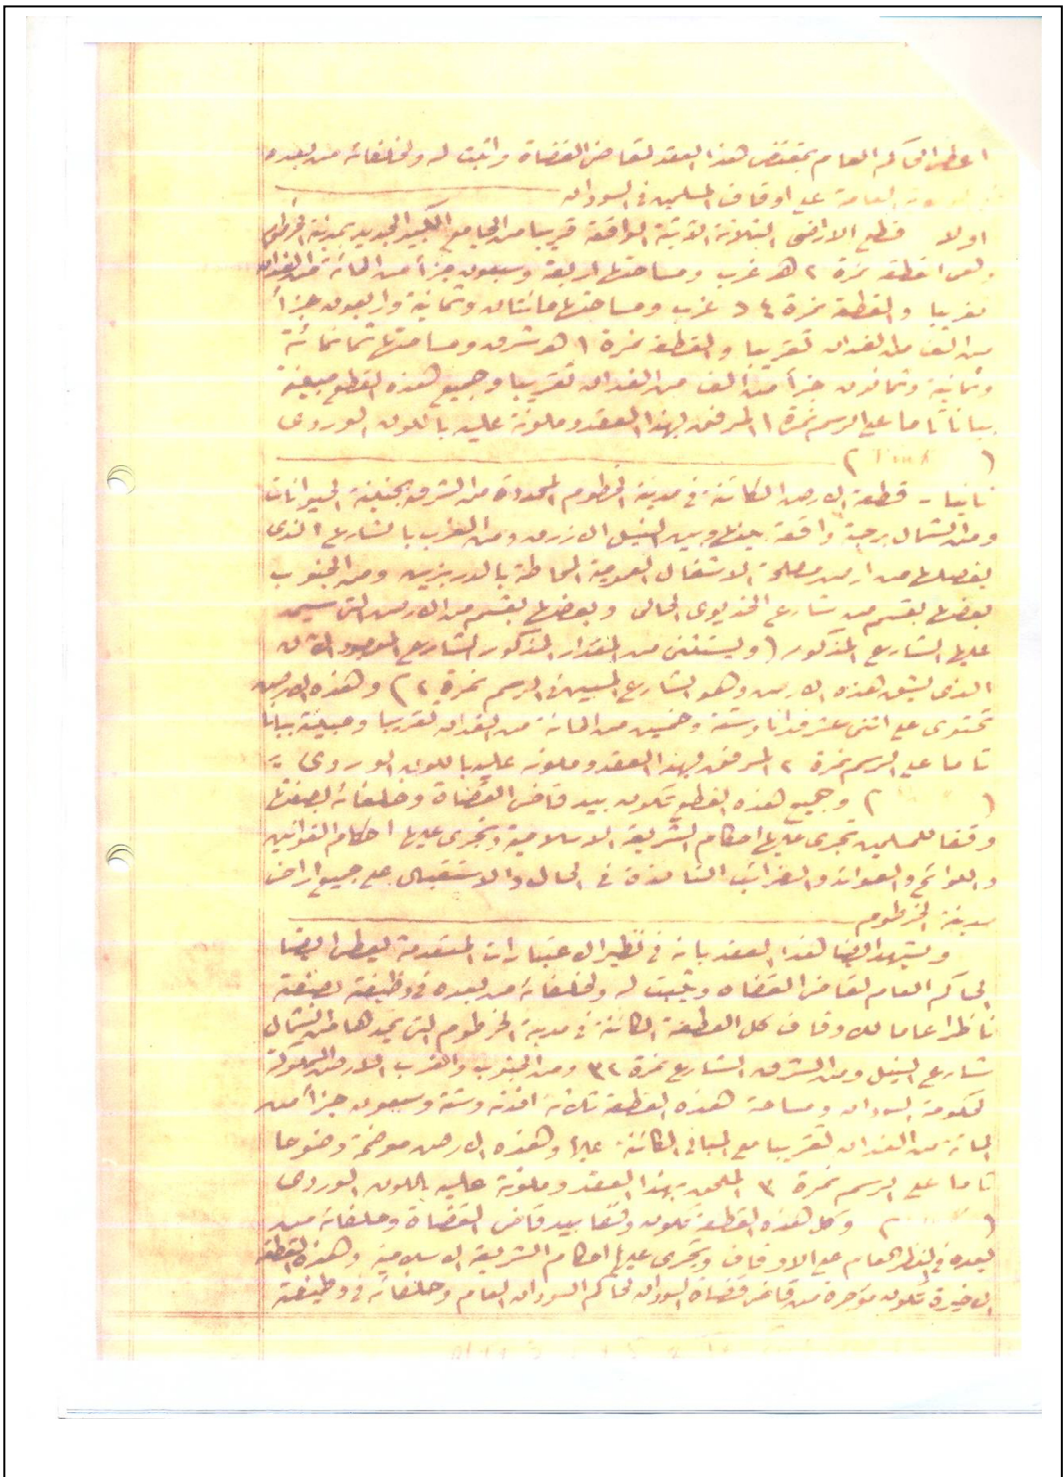 اعطى الحاكم العام بمقتضى هذا العقد لقاضى القضاة واثبت له ولخلفائه من بعده
العامة على اوقاف المسلمين فى السودان
اولا قطع الاراضى الثلاثة الآتية الواقعة قريبا من الجامع الكبير الجديد بمدينة الخرطوم
وهى القطعة نمرة ٢ هـ غرب ومساحتها اربعة وسبعون جزأ من المائة من الفدان
تقريبا والقطعة نمرة ٤ د غرب ومساحتها مائتان وثمانية واربعون جزأ
من الف من الفدان تقريبا والقطعة نمرة ١ هـ شرق ومساحتها ثمانمائة
وثمانية وثمانون جزأ من الف من الفدان تقريبا وجميع هذه القطع مبينة
بيانا تاما على الرسم نمرة ١ المرفق بهذا العقد وملونة عليه باللون الوردى
( Pink )
ثانيا - قطعة الارض الكائنة فى مدينة الخرطوم المحدودة من الشرق بجنينة الحيوانات
ومن الشمال برحبة واقعة بينها وبين النيل الازرق ومن الغرب بالشارع الذى
يفصلها من ارض مصلحة الاشغال العمومية المحاطة بالدربزين ومن الجنوب
بعضها بقسم من شارع الخديوى الحالى وبعضها بقسم من الارض التى سيمر
عليها الشارع المذكور ( ويستثنى من المقدار المذكور الشارع الموجود الآن
الذى يشق هذه الارض وهو الشارع المبين فى الرسم نمرة ٢ ) وهذه الارض
تحتوى على اثنى عشر فدانا وستة وخمسين من المائة من الفدان تقريبا ومبينة بيانا
تاما على الرسم نمرة ٢ المرفق بهذا العقد وملونه عليه باللون الوردى
( ) وجميع هذه القطع تكون بيد قاضى القضاة وخلفائه بصفتها
وقفا للمسلمين تجرى عليها احكام الشريعة الاسلامية وتجرى عليها احكام القوانين
واللوائح والعوائد والضرائب النافذة فى الحال والاستقبال على جميع اراضى
مدينة الخرطوم
ويشهد ايضا هذا العقد بانه فى نظير الاعتبارات المتقدمة يعطى ايضا
الحاكم العام لقاضى القضاه ويثبت له ولخلفائه من بعده فى وظيفته بصفته
ناظرا عاما للاوقاف كل القطعة الكائنة فى مدينة الخرطوم التى يحدها من الشمال
شارع النيل ومن الشرق الشارع نمرة ٣٢ ومن الجنوب والغرب الارض المملوكة
لحكومة السودان ومساحة هذه القطعة ثلاثة افدنه وستة وسبعون جزأ من
المائة من الفدان تقريبا مع المبانى الكائنة عليها وهذه الارض موضحة وضوحا
تاما على الرسم نمرة ٣ الملحق بهذا العقد وملونة عليه باللون الوردى
( ) وكل هذه القطعة تكون وقفا بيد قاضى القضاة وخلفائه من
بعده فى النظر العام على الاوقاف وتجرى عليها احكام الشريعة الاسلامية وهذه القطعة
الاخيرة تكون مؤجرة من قاضى قضاة السودان لحاكم السودان العام وخلفائه فى وظيفته